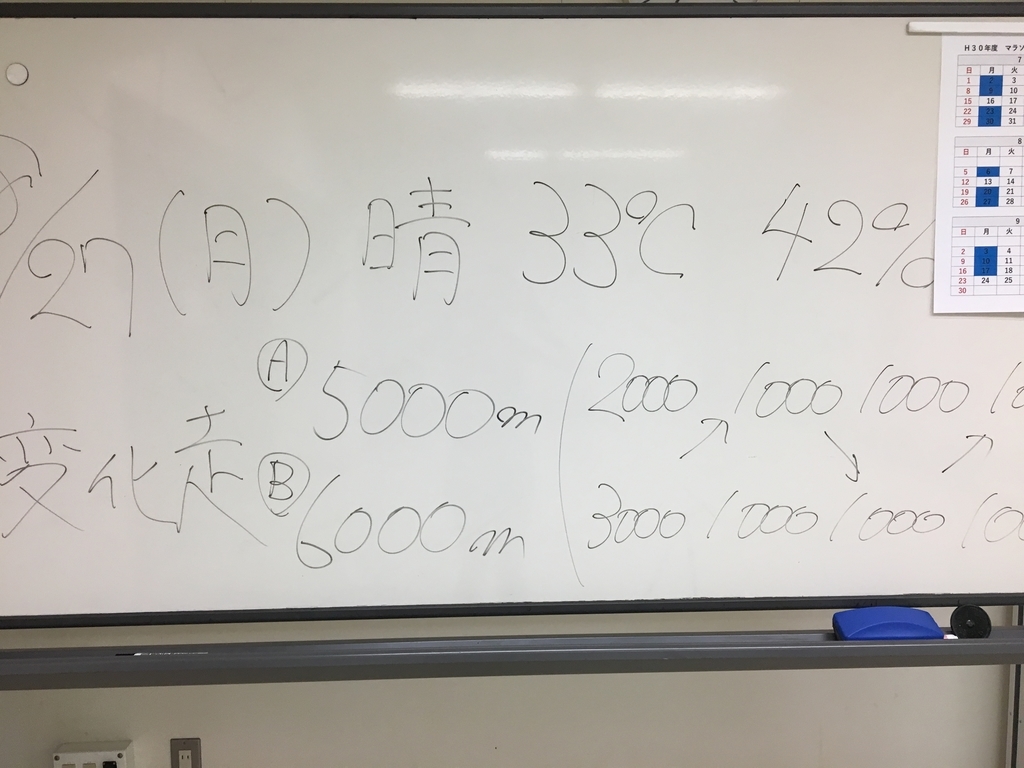 8/27(月) 晴 33℃ 42%
変化走
Ⓐ 5000m (2000 ↗ 1000 ↘ 1000 ↗
Ⓑ 6000m (3000 1000 1000
H30年度 マラソ
7
日 月 火
1 2 3
8 9 10
15 16 17
22 23 24
29 30 31
8
日 月 火
5 6 7
12 13 14
19 20 21
26 27 28
9
日 月 火
2 3 4
9 10 11
16 17 18
23 24 25
30